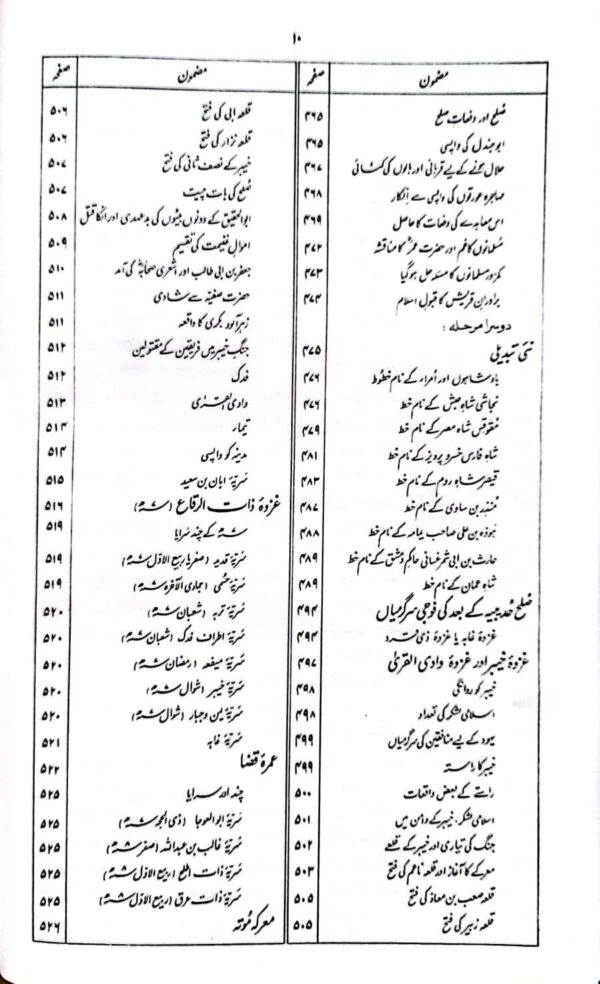 ۱۰
مضمون صفحہ
صلح اور دفعات صلح ۴۶۵
ابوجندل کی واپسی ۴۶۵
حلال ہونے کے لیے قربانی اور بالوں کی کٹائی ۴۶۷
مہاجرہ عورتوں کی واپسی سے انکار ۴۶۸
اس معاہدے کی دفعات کا حاصل ۴۶۹
مسلمانوں کا غم اور حضرت عمرؓ کا مناقشہ ۴۷۲
کمزور مسلمانوں کا مسئلہ حل ہوگیا ۴۷۳
برادرانِ قریش کا قبولِ اسلام ۴۷۴
دوسرا مرحلہ :
نئی تبدیلی ۴۷۵
بادشاہوں اور امراء کے نام خطوط ۴۷۶
نجاشی شاہِ حبش کے نام خط ۴۷۶
مقوقس شاہ مصر کے نام خط ۴۷۹
شاہِ فارس خسرو پرویز کے نام خط ۴۸۱
قیصر شاہِ روم کے نام خط ۴۸۳
منذر بن ساوی کے نام خط ۴۸۷
ہوذہ بن علی صاحب یمامہ کے نام خط ۴۸۸
حارث بن ابی شمر غسانی حاکمِ دمشق کے نام خط ۴۸۹
شاہِ عمان کے نام خط ۴۸۹
صلح حدیبیہ کے بعد کی فوجی سرگرمیاں ۴۹۴
غزوۂ غابہ یا غزوۂ ذی قرد ۴۹۴
غزوۂ خیبر اور غزوۂ وادی القریٰ ۴۹۷
خیبر کو روانگی ۴۹۸
اسلامی لشکر کی تعداد ۴۹۸
یہود کے لیے منافقین کی سرگرمیاں ۴۹۹
خیبر کا راستہ ۴۹۹
راستے کے بعض واقعات ۵۰۰
اسلامی لشکر، خیبر کے دامن میں ۵۰۱
جنگ کی تیاری اور خیبر کے قلعے ۵۰۲
معرکے کا آغاز اور قلعہ ناعم کی فتح ۵۰۳
قلعہ صعب بن معاذ کی فتح ۵۰۵
قلعہ زبیر کی فتح ۵۰۵
مضمون صفحہ
قلعہ ابی کی فتح ۵۰۶
قلعہ نزار کی فتح ۵۰۶
خیبر کے نصف ثانی کی فتح ۵۰۷
صلح کی بات چیت ۵۰۷
ابوالحقیق کے دونوں بیٹوں کی بدعہدی اور انکا قتل ۵۰۸
اموالِ غنیمت کی تقسیم ۵۰۹
جعفر بن ابی طالب اور اشعری صحابہؓ کی آمد ۵۱۰
حضرت صفیہؓ سے شادی ۵۱۱
زہر آلود بکری کا واقعہ ۵۱۱
جنگِ خیبر میں فریقین کے مقتولین ۵۱۲
فدک ۵۱۲
وادی القریٰ ۵۱۳
تیماء ۵۱۴
مدینہ کو واپسی ۵۱۴
سریۂ ابان بن سعید ۵۱۵
غزوۂ ذات الرقاع (۷ھ) ۵۱۶
۷ھ کے چند سرایا ۵۱۹
سریۂ قدید (صفر یا ربیع الاول ۷ھ) ۵۱۹
سریۂ حسمٰی (جمادی الآخرہ ۷ھ) ۵۱۹
سریۂ تربہ (شعبان ۷ھ) ۵۲۰
سریۂ اطراف فدک (شعبان ۷ھ) ۵۲۰
سریۂ میفعہ (رمضان ۷ھ) ۵۲۰
سریۂ خیبر (شوال ۷ھ) ۵۲۰
سریۂ یمن و جبار (شوال ۷ھ) ۵۲۰
سریۂ غابہ ۵۲۱
عمرۂ قضا ۵۲۲
چند اور سرایا ۵۲۵
سریۂ ابوالعوجا (ذی الحجہ ۷ھ) ۵۲۵
سریۂ غالب بن عبداللہ (صفر ۸ھ) ۵۲۵
سریۂ ذات اطلح (ربیع الاول ۸ھ) ۵۲۵
سریۂ ذات عرق (ربیع الاول ۸ھ) ۵۲۵
معرکۂ موتہ ۵۲۶